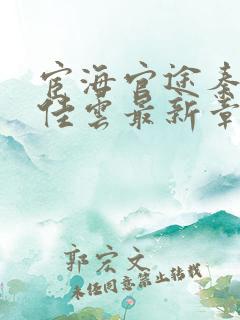 宦海官途秦
佳雲最新章
郭宏文
未经同意禁止转载